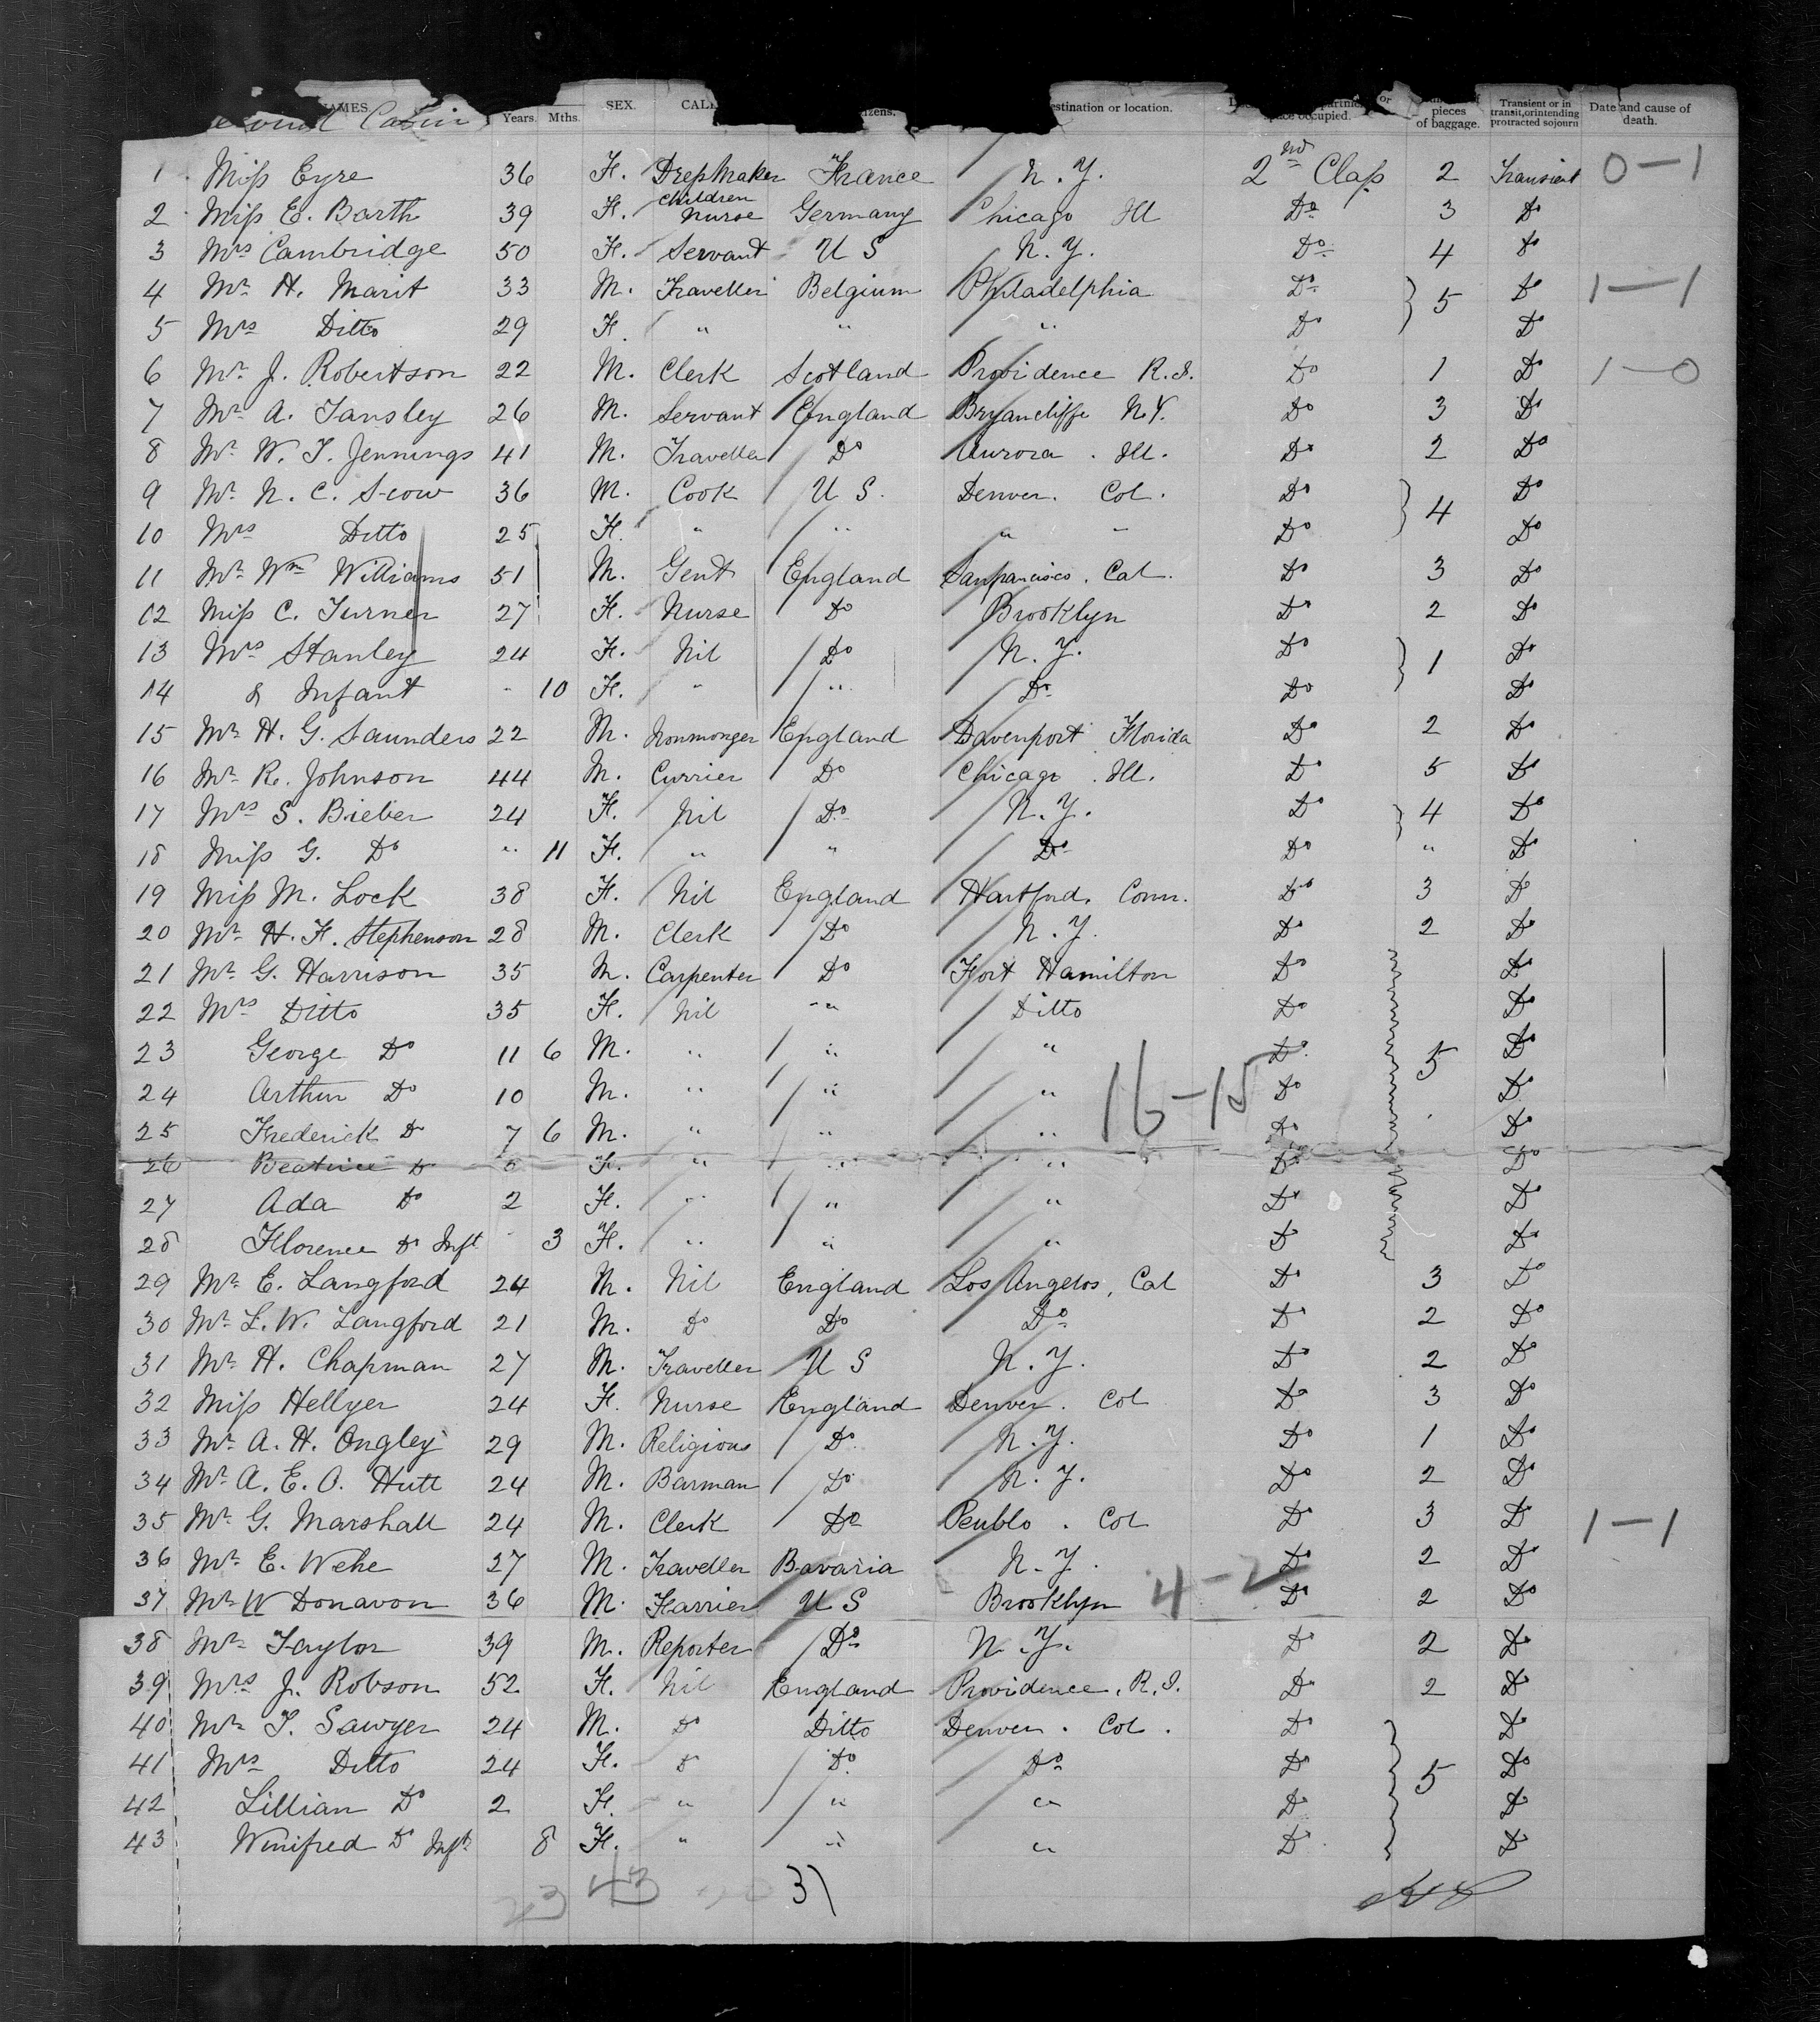 NAMES. Years. Mths. SEX. CALL estination or location. space occupied. pieces of baggage. Transient or in transit, or intending protracted sojourn Date and cause of death.
Cabin
1 Miss Eyre 36 F. DressMaker France N.Y. 2nd Class 2 Transient 0-1
2 Miss E. Barth 39 F. Children Nurse Germany Chicago Ill Do 3 Do
3 Mrs Cambridge 50 F. Servant U S N.Y. Do 4 Do
4 Mr H. Marit 33 M. Traveller Belgium Philadelphia Do 5 Do 1-1
5 Mrs Ditto 29 F. " " " Do Do
6 Mr J. Robertson 22 M. Clerk Scotland Providence R.I. Do 1 Do 1-0
7 Mr A. Tansley 26 M. Servant England Bryancliffe N.Y. Do 3 Do
8 Mr W. T. Jennings 41 M. Traveller Do Aurora . Ill. Do 2 Do
9 Mr N. C. Scow 36 M. Cook U S. Denver. Col. Do 4 Do
10 Mrs Ditto 25 F. " " " " Do Do
11 Mr Wm Williams 51 M. Gent England Sanfrancisco. Cal. Do 3 Do
12 Miss C. Turner 27 F. Nurse Do Brooklyn Do 2 Do
13 Mrs Stanley 24 F. Nil Do N.Y. Do 1 Do
14 & Infant " 10 F. " " Do Do Do
15 Mr H. G. Saunders 22 M. Ironmonger England Davenport Florida Do 2 Do
16 Mr R. Johnson 44 M. Currier Do Chicago . Ill. Do 5 Do
17 Mrs S. Bieber 24 F. Nil Do N.Y. Do 4 Do
18 Miss G. Do " 11 F. " " Do Do " Do
19 Miss M. Lock 38 F. Nil England Hartford. Conn. Do 3 Do
20 Mr H. F. Stephenson 28 M. Clerk Do N.Y. Do 2 Do
21 Mr G. Harrison 35 M. Carpenter Do Fort Hamilton Do Do
22 Mrs Ditto 35 F. Nil " Ditto Do Do
23 George Do 11 6 M. " " " Do 5 Do
24 Arthur Do 10 M. " " " 16-15 Do Do
25 Frederick Do 7 6 M. " " " Do Do
26 Beatrice Do F. " " " Do Do
27 Ada Do 2 F. " " " Do Do
28 Florence Do Inft " 3 F. " " " Do Do
29 Mr E. Langford 24 M. Nil England Los Angelos, Cal Do 3 Do
30 Mr L. W. Langford 21 M. Do Do Do Do 2 Do
31 Mr H. Chapman 27 M. Traveller U S N.Y. Do 2 Do
32 Miss Hellyer 24 F. Nurse England Denver. Col Do 3 Do
33 Mr A. H. Ongley 29 M. Religious Do N.Y. Do 1 Do
34 Mr A. E. O. Hutt 24 M. Barman Do N.Y. Do 2 Do
35 Mr G. Marshall 24 M. Clerk Do Peublo . Col Do 3 Do 1-1
36 Mr E. Wehe 27 M. Traveller Bavaria N.Y. Do 2 Do
37 Mr W Donavon 36 M. Farrier U S Brooklyn 4-2 Do 2 Do
38 Mr Taylor 39 M. Reporter Do N.Y. Do 2 Do
39 Mrs J. Robson 52 F. Nil England Providence. R.I. Do 2 Do
40 Mr T. Sawyer 24 M. Do Ditto Denver . Col . Do Do
41 Mrs Ditto 24 F. Do Do Do Do 5 Do
42 Lillian Do 2 F. " " " Do Do
43 Winifred Do Inft 8 F. " " " Do Do
23 43 31